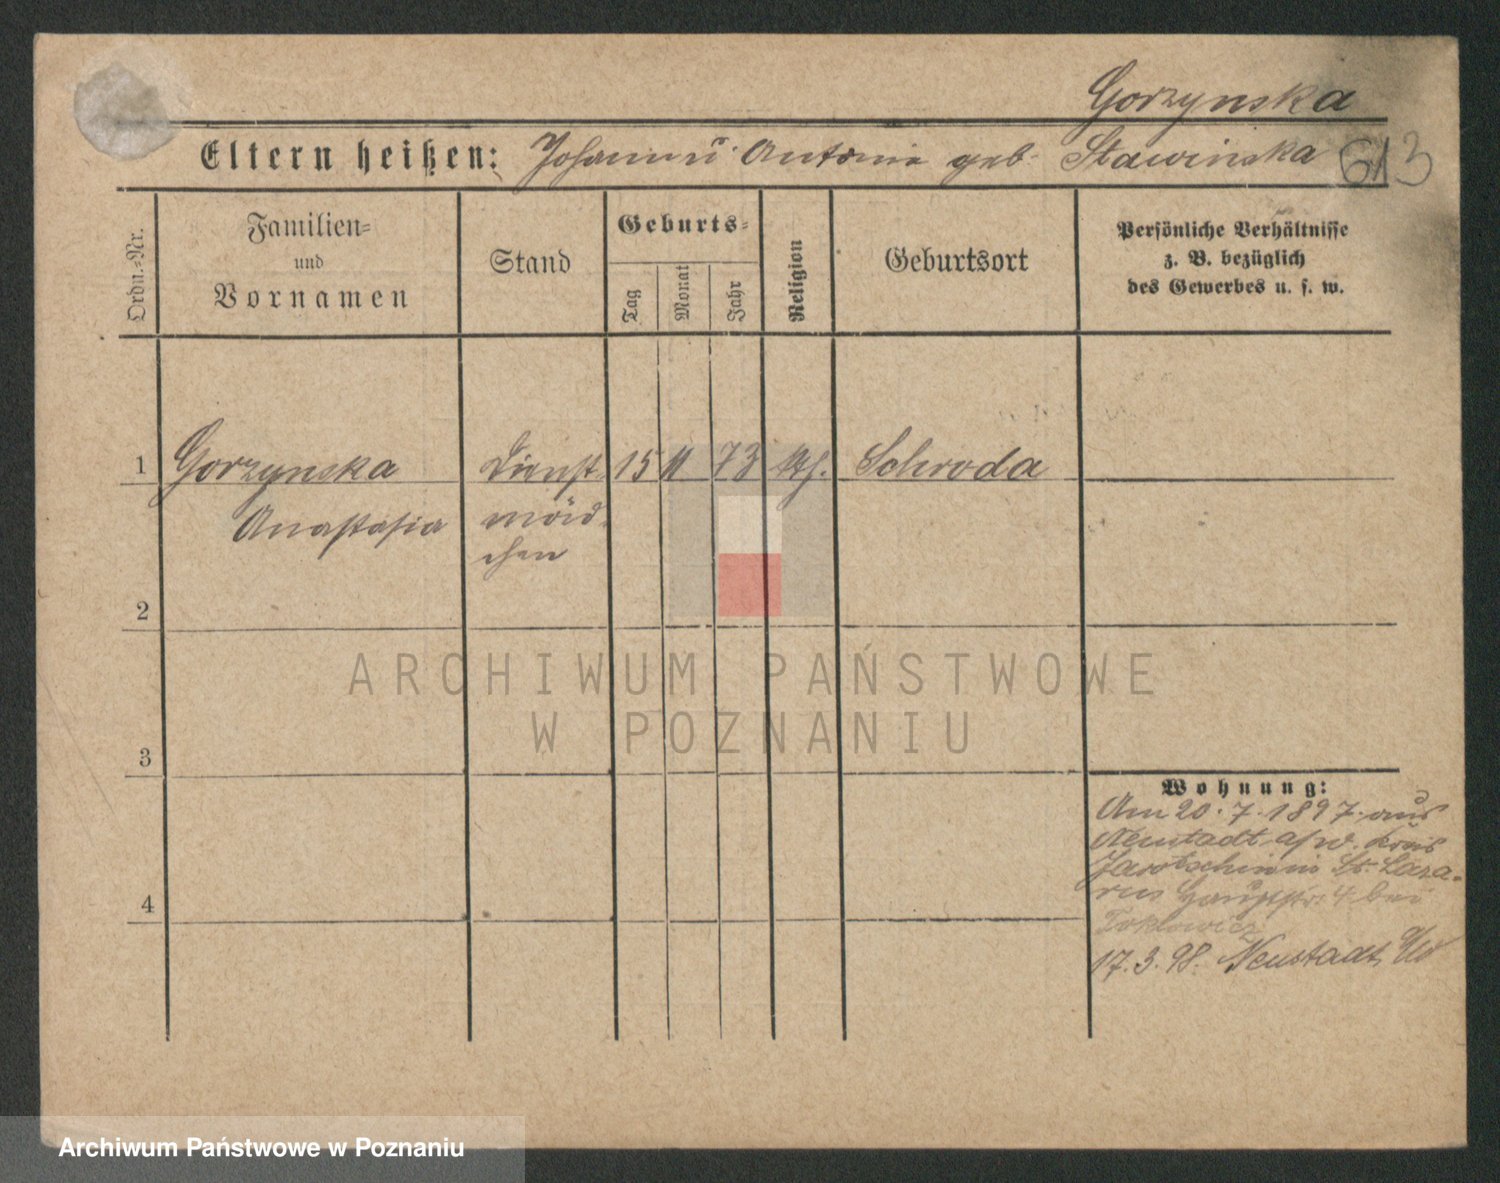 Gorzynska
Eltern heißen: Johann u. Antonie geb. Stawinska 613
Ordn.-Nr.
Familien-
und
Vornamen
Stand
Geburts-
Tag
Monat
Jahr
Religion
Geburtsort
Persönliche Verhältnisse
z. B. bezüglich
des Gewerbes u. s. w.
1 Gorzynska Dienst- 15 11 73 kth. Schroda
Anastasia mäd-
chen
2
3
4
Wohnung:
Am 20.7.1897. aus
Neustadt a/W. Kreis
Jarotschin in St. Laza-
rus Hauptstr. 4 bei
17.3.98. Neustadt
ARCHIWUM PAŃSTWOWE
W POZNANIU
Archiwum Państwowe w Poznaniu